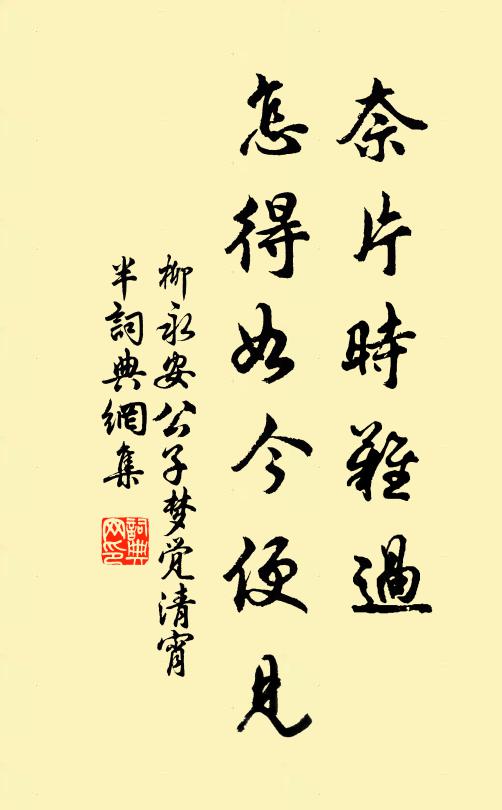 奈片時難過
怎得如今便見
柳永安公子梦觉清宵
半詞典網集
詞典
网印